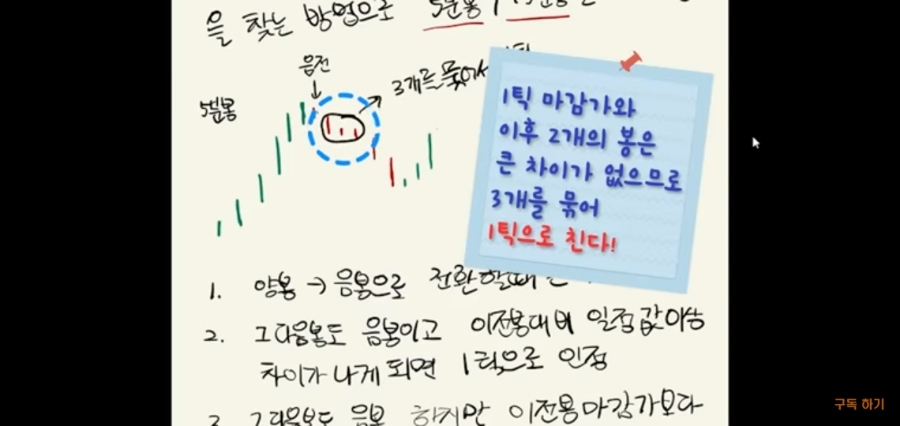 을 찾는 방법으로 5분봉 /
음전
↓
3개를 묶어서
5분봉
1틱 마감가와
이후 2개의 봉은
큰 차이가 없으므로
3개를 묶어
1틱으로 친다!
1. 양봉 → 음봉으로 전환할때
2. 그다음봉도 음봉이고 이전봉대비 일정값이상
차이가 나게 되면 1틱으로 인정
3. 그다음봉도 음봉 하지만 이전봉마감가보다
구독 하기